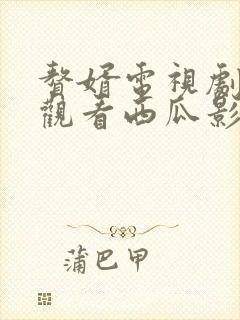 贅婿電視劇
觀看西瓜影
蒲巴甲